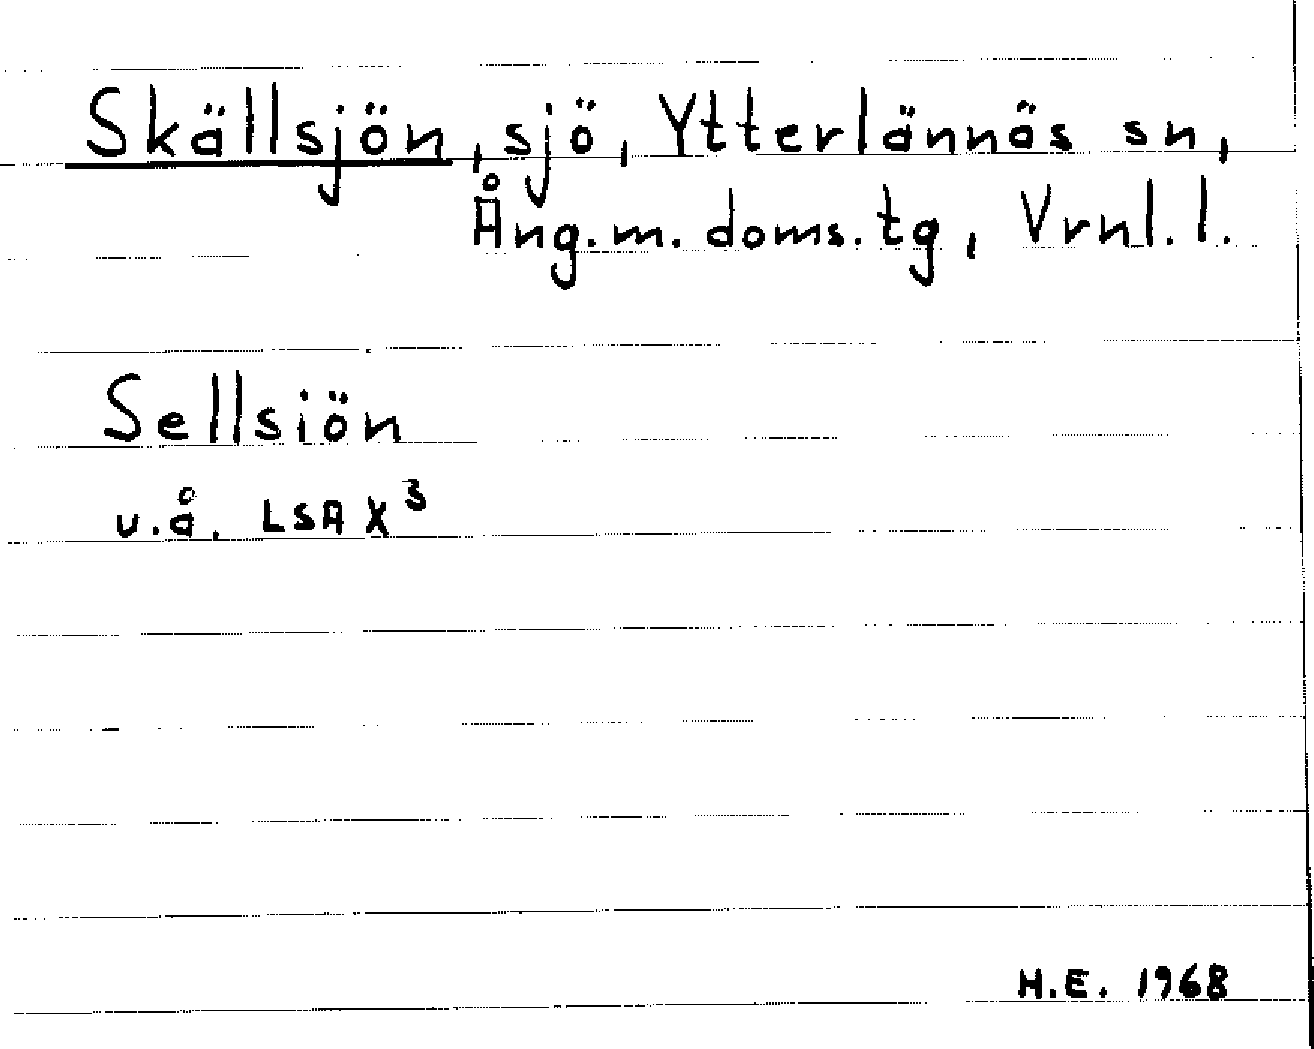 Skällsjön, sjö, Ytterlännäs sn,
Ång.m. doms.tg, Vrnl.l.
Sellsiön
u.å. LSA X³
H.E. 1968